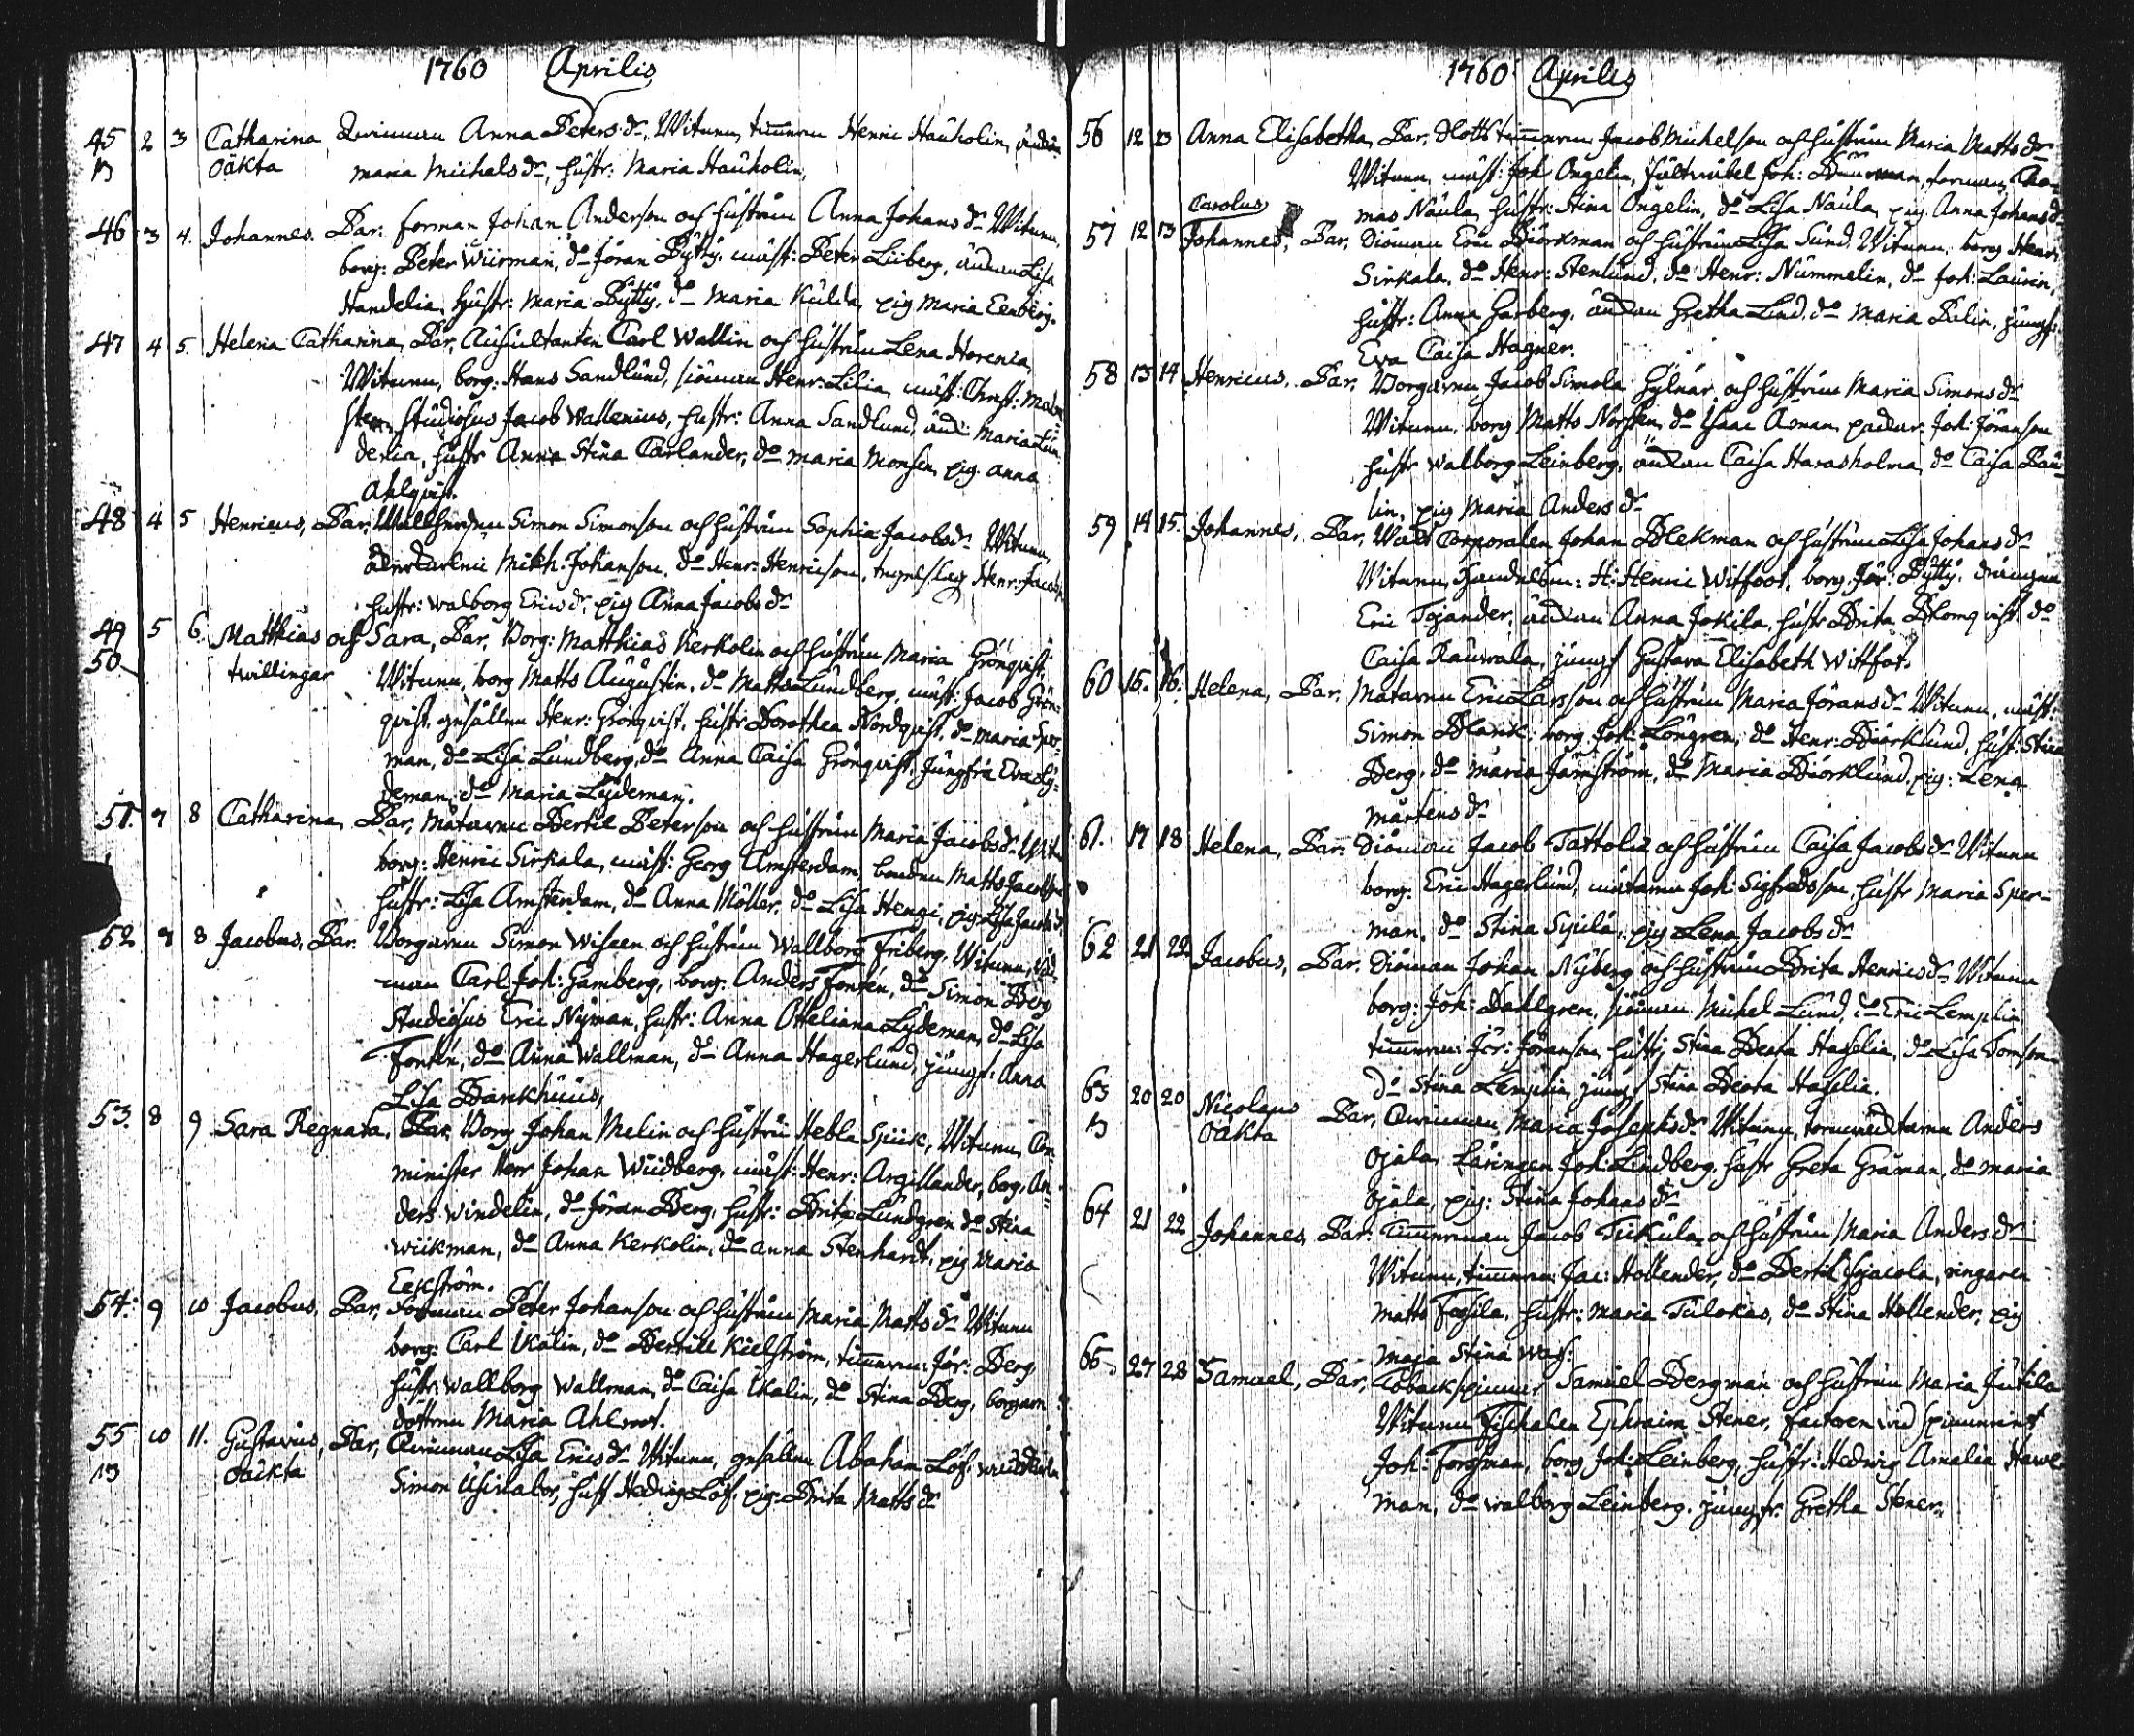 1760 Aprilis
45 2 3 Catharina Qwinnan Anna Peters dr, Witnen, timmm Henric Hauholin, änkan
oäkta maria Michals dr, hustr: Maria Hauholin,
46 3 4. Johannes. Par: forman Johan Anderson och hustrun Anna Johans dr Witnen,
borg: Peter Wiirman, do Jöran Pytty, mäst: Peter Liiberg, änkan Lisa
Handelia, Hustr: Maria Pytty, do Maria Kulda, pig Maria Eenberg.
47 4 5. Helena Catharina, Par, Auscultanten Carl Wallin och hustrun Lena Horenia,
Witnen, borg: Hans Sandlund, siöman Henr: Lilia, mäst: Christ: Malm
sten studiosus Jacob Wallenius, hustr: Anna Sandlund, änk: Maria Lun
delia, hustr Anna Stina Carlander, do maria Monsen, pig anna
Ahlqvist.
48 4 5 Henricus, Par, Simon Simonson och hustrun Sophia Jacobs dr Witnen,
Mikh: Johanson, do Henr: Henricson, Henr: Jacobs
hustr: walborg Erics dr, pig Anna Jacobs dr
49 5 6. Matthias och Sara, Par, Borg: Matthias Kerkolin och hustrun Maria Grönqvist,
50 twillingar Witnen, borg Matts Augustin, do Matts Lundberg, mäst: Jacob Grön-
qvist, gesällen Henr: Grönqvist, hustr Dorothea Nordqvist, do maria Sper-
man, do Lisa Lundberg, do Anna Caisa Grönqvist, Jungfru Eva Ly-
deman, do Maria Lydeman.
51. 7 8 Catharina, Par, Matarne Bertil Peterson och hustrun Maria Jacobs dr Witn
borg: Henric Sirkala, mäst: Georg Amsterdam, bonden Matts Jacobson
hustr: Lisa Amsterdam, do Anna Möller, do Lisa Hengi, pig Lisa Jacobs dr
52 7 8 Jacobus, Par. Borgaren Simon Wiseen och hustrun Wallborg Friberg, Witnen,
man Carl Joh: Gamberg, borg: Anders Fonten, do Simon Berg
Studiosus Eric Nyman, hustr: Anna Otteliana Lydeman, do Lisa
Fontén, do Anna Wallman, do Anna Hagerlund, jungf: Anna
Lisa Bankhuus,
53. 8 9 Sara Regnata, Par, Borg Johan Melin och hustru Hebla Spiik, Witnen, Com-
minister Herr Johan Wiidberg, mäst: Henr: Argillander, borg: An-
ders Windelin, do Jöran Berg, hustr: Brita Lundgren do Stina
Wiikman, do Anna Kerkolin, do anna Stenhardt, pig Maria
Eekström.
54. 9 10 Jacobus, Par, Forman Peter Johanson och hustrun Maria Matts dr Witnen
borg: Carl Ikalin, do Bertill Kielström, timmm: Jör: Berg
hustr: Wallborg Wallman, do Caisa Ikalin, do Stina Berg, borgare
dottren Maria Ahlroot.
55 10 11. Gustavus, Par, Qwinnan Lisa Erics dr Witnen, gesällen Abraham Löf,
oäkta Simon Usirlabor, hust Hedwig Löf, pig. Brita Matts dr
1760 Aprilis
56 12 13 Anna Elisabetha, Par, Slotts timmm Jacob Michelson och hustrun Maria Matts dr
Witnen, mäst: Joh Öngelin, Fältwäbel Joh: forman Tho-
mas Naula, hustr: Stina Öngelin, do Lisa Naula, pig Anna Johans dr
Carolus
57 12 13 Johannes, Par, Siöman Eric Biörkman och hustrun Lisa Sund, Witnen, borg Henr:
Sirkala, do Henr: Stenlund, do Henr: Nummelin, do Joh: Laurin,
hustr: Anna Garberg, änkan Gretha Lind, do Maria Palin, jungf:
Eva Caisa Hagner.
58 13 14 Henricus, Par, Borgaren Jacob Simola Gylnär och hustrun Maria Simons dr
Witnen, borg Matts Norsten, do Isaac Asman, packar: Joh: Jöranson
hustr Walborg Leinberg, änkan Caisa Harasholma, do Caisa Pau-
lin, pig Maria Anders dr
59 14 15. Johannes, Par, Corporalen Johan Blekman och hustrun Lisa Johans dr
Witnen, Handelsm: H: Henric Witfoot, borg. Jör: Pytty, drängen
Eric Tojander, änkan Anna Jokila, hustr Brita Blomqvist, do
Caisa Rauvala, jungf Gustava Elisabeth Wittfot.
60 15. 16. Helena, Par, Matarne Eric Larsson och hustrun Maria Jörans dr Witnen, mäst:
Simon Blank, borg. Joh: Löngren, do Henr: Biörklund, hust: Stina
Berg, do maria Jämström, do Maria Biörklund, pig: Lena
Mårtens dr
61. 17 18 Helena, Par: Siöman Jacob Tattolin och hustrun Caisa Jacobs dr Witnen
borg: Eric Hagerlund, matarne Joh: Sigfredsson, hustr Maria Sper-
man, do Stina Syulä, pig Lena Jacobs dr
62 21 22 Jacobus, Par. Siöman Johan Nyberg och hustrun Brita Henrics dr Witnen
borg: Joh: Dahlgren, siöman Michel Lund, do Eric Lemplin
timmm: Jör: Jöranson, hustr Stina Beata Hasselia, do Lisa Tomson
do Stina Lemplin, jungf Stina Beata Hasselia.
63 20 20 Nicolaus Par, Qwinnan Maria Josephs dr Witnen, Anders
oäkta Ojala, Läringen Joh: Lindberg, hustr Greta Gråman, do maria
Ojala, pig: Stina Johans dr
64 21 22 Johannes Par: Timmerman Jacob Tukula och hustrun Maria Anders dr
Witnen, timmm: Jac: Hollender, do Bertil Syacola, ringaren
Matts Fossila, hustr: Maria Tulokas, do Stina Hollender, pig
Maja Stina Wass:
65 27 28 Samuel, Par, Tobackspinnar Samuel Bergman och hustrun Maria Jutila
Witnen Fiskalen Ephraim Stener, factoren wid spinneriet
Joh: Forssman, borg Joh: Leinberg, hustr: Hedwig Amalia Hawe
man, do Walborg Leinberg, jungfr: Gretha Stener.